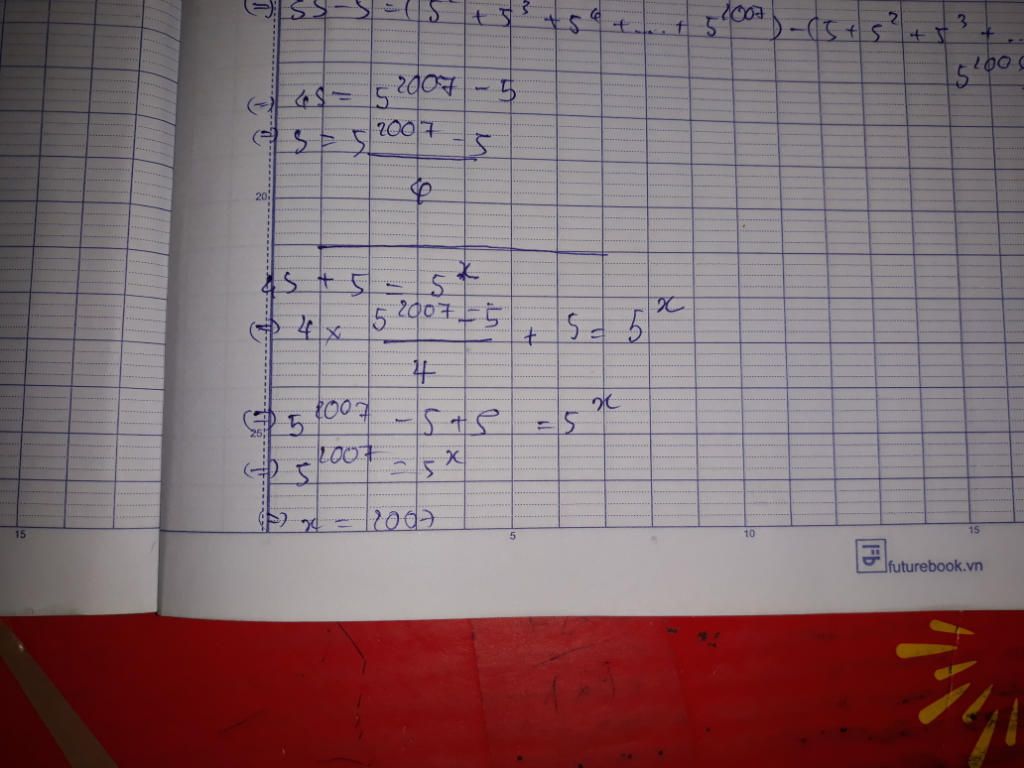 (=) 5S - S = (5² + 5³ + 5⁴ + ... + 5²⁰⁰⁷) - (5 + 5² + 5³ + ...
(=) 4S = 5²⁰⁰⁷ - 5
(=) S = 5²⁰⁰⁷ - 5
4
20
4S + 5 = 5ˣ
(=) 4 x 5²⁰⁰⁷ - 5 + 5 = 5ˣ
4
(=) 5²⁰⁰⁷ - 5 + 5 = 5ˣ
25
(=) 5²⁰⁰⁷ = 5ˣ
(=) x = 2007
15 5 10 15
futurebook.vn